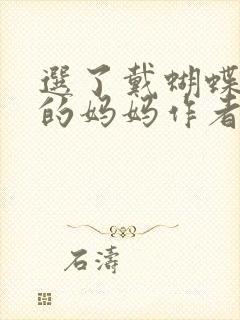 選了戴蝴蝶
的妈妈作者
石濤